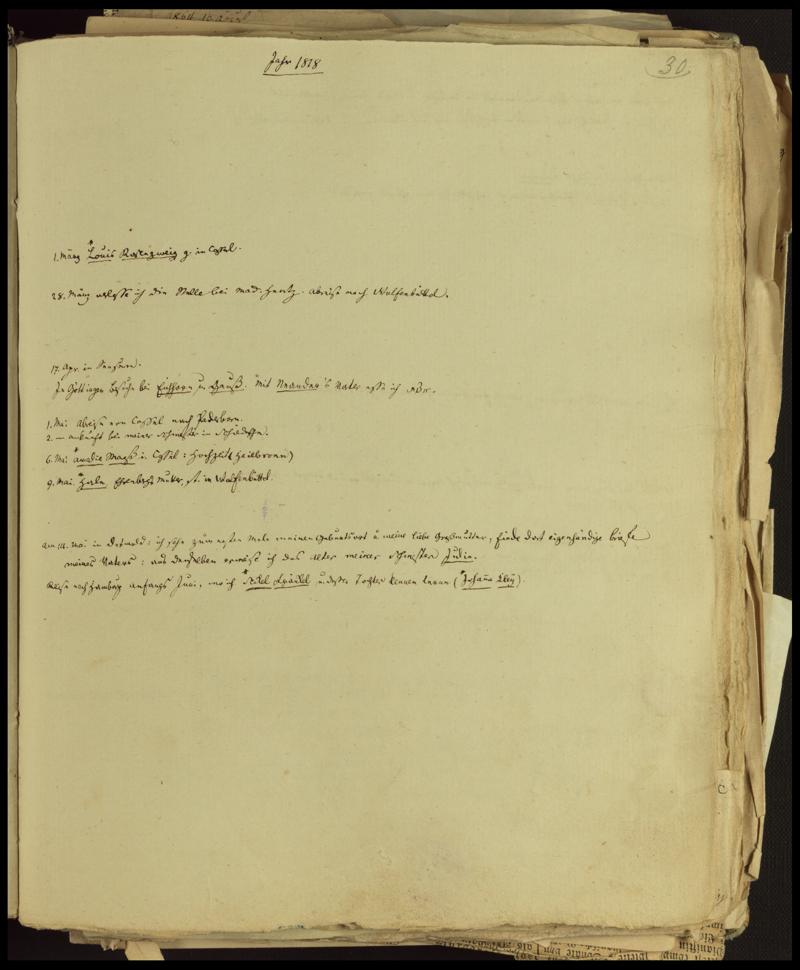 Jahr 1818
30
1. März Louis Rosengweig g. in Cassel.
28. März verlasse ich die Stelle bei Mad. Hertz. Abreise nach Wolfenbüttel.
17. Apr. in Seesen.
In Göttingen besuche bei Eichhorn u. Gauß. Mit Neander's Vater esse ich
1. Mai Abreise von Cassel nach Paderborn.
2. — Ankunft bei meiner Schwester in
6. Mai Amalie in Cassel: Hochzeit (Heilbronn)
9. Mai. Ehrenbergs Mutter, st. in Wolfenbüttel.
am 14. Mai in Detmold: ich sehe zum ersten Male meinen Geburtsort u. meine liebe Großmutter, finde dort eigenhändige Briefe
meines Vaters: aus denselben ich das Alter meiner Schwester Judin.
Reise nach Hamburg anfangs Juni, wo ich u. dessen Tochter kennen lerne (Johanna Kley).